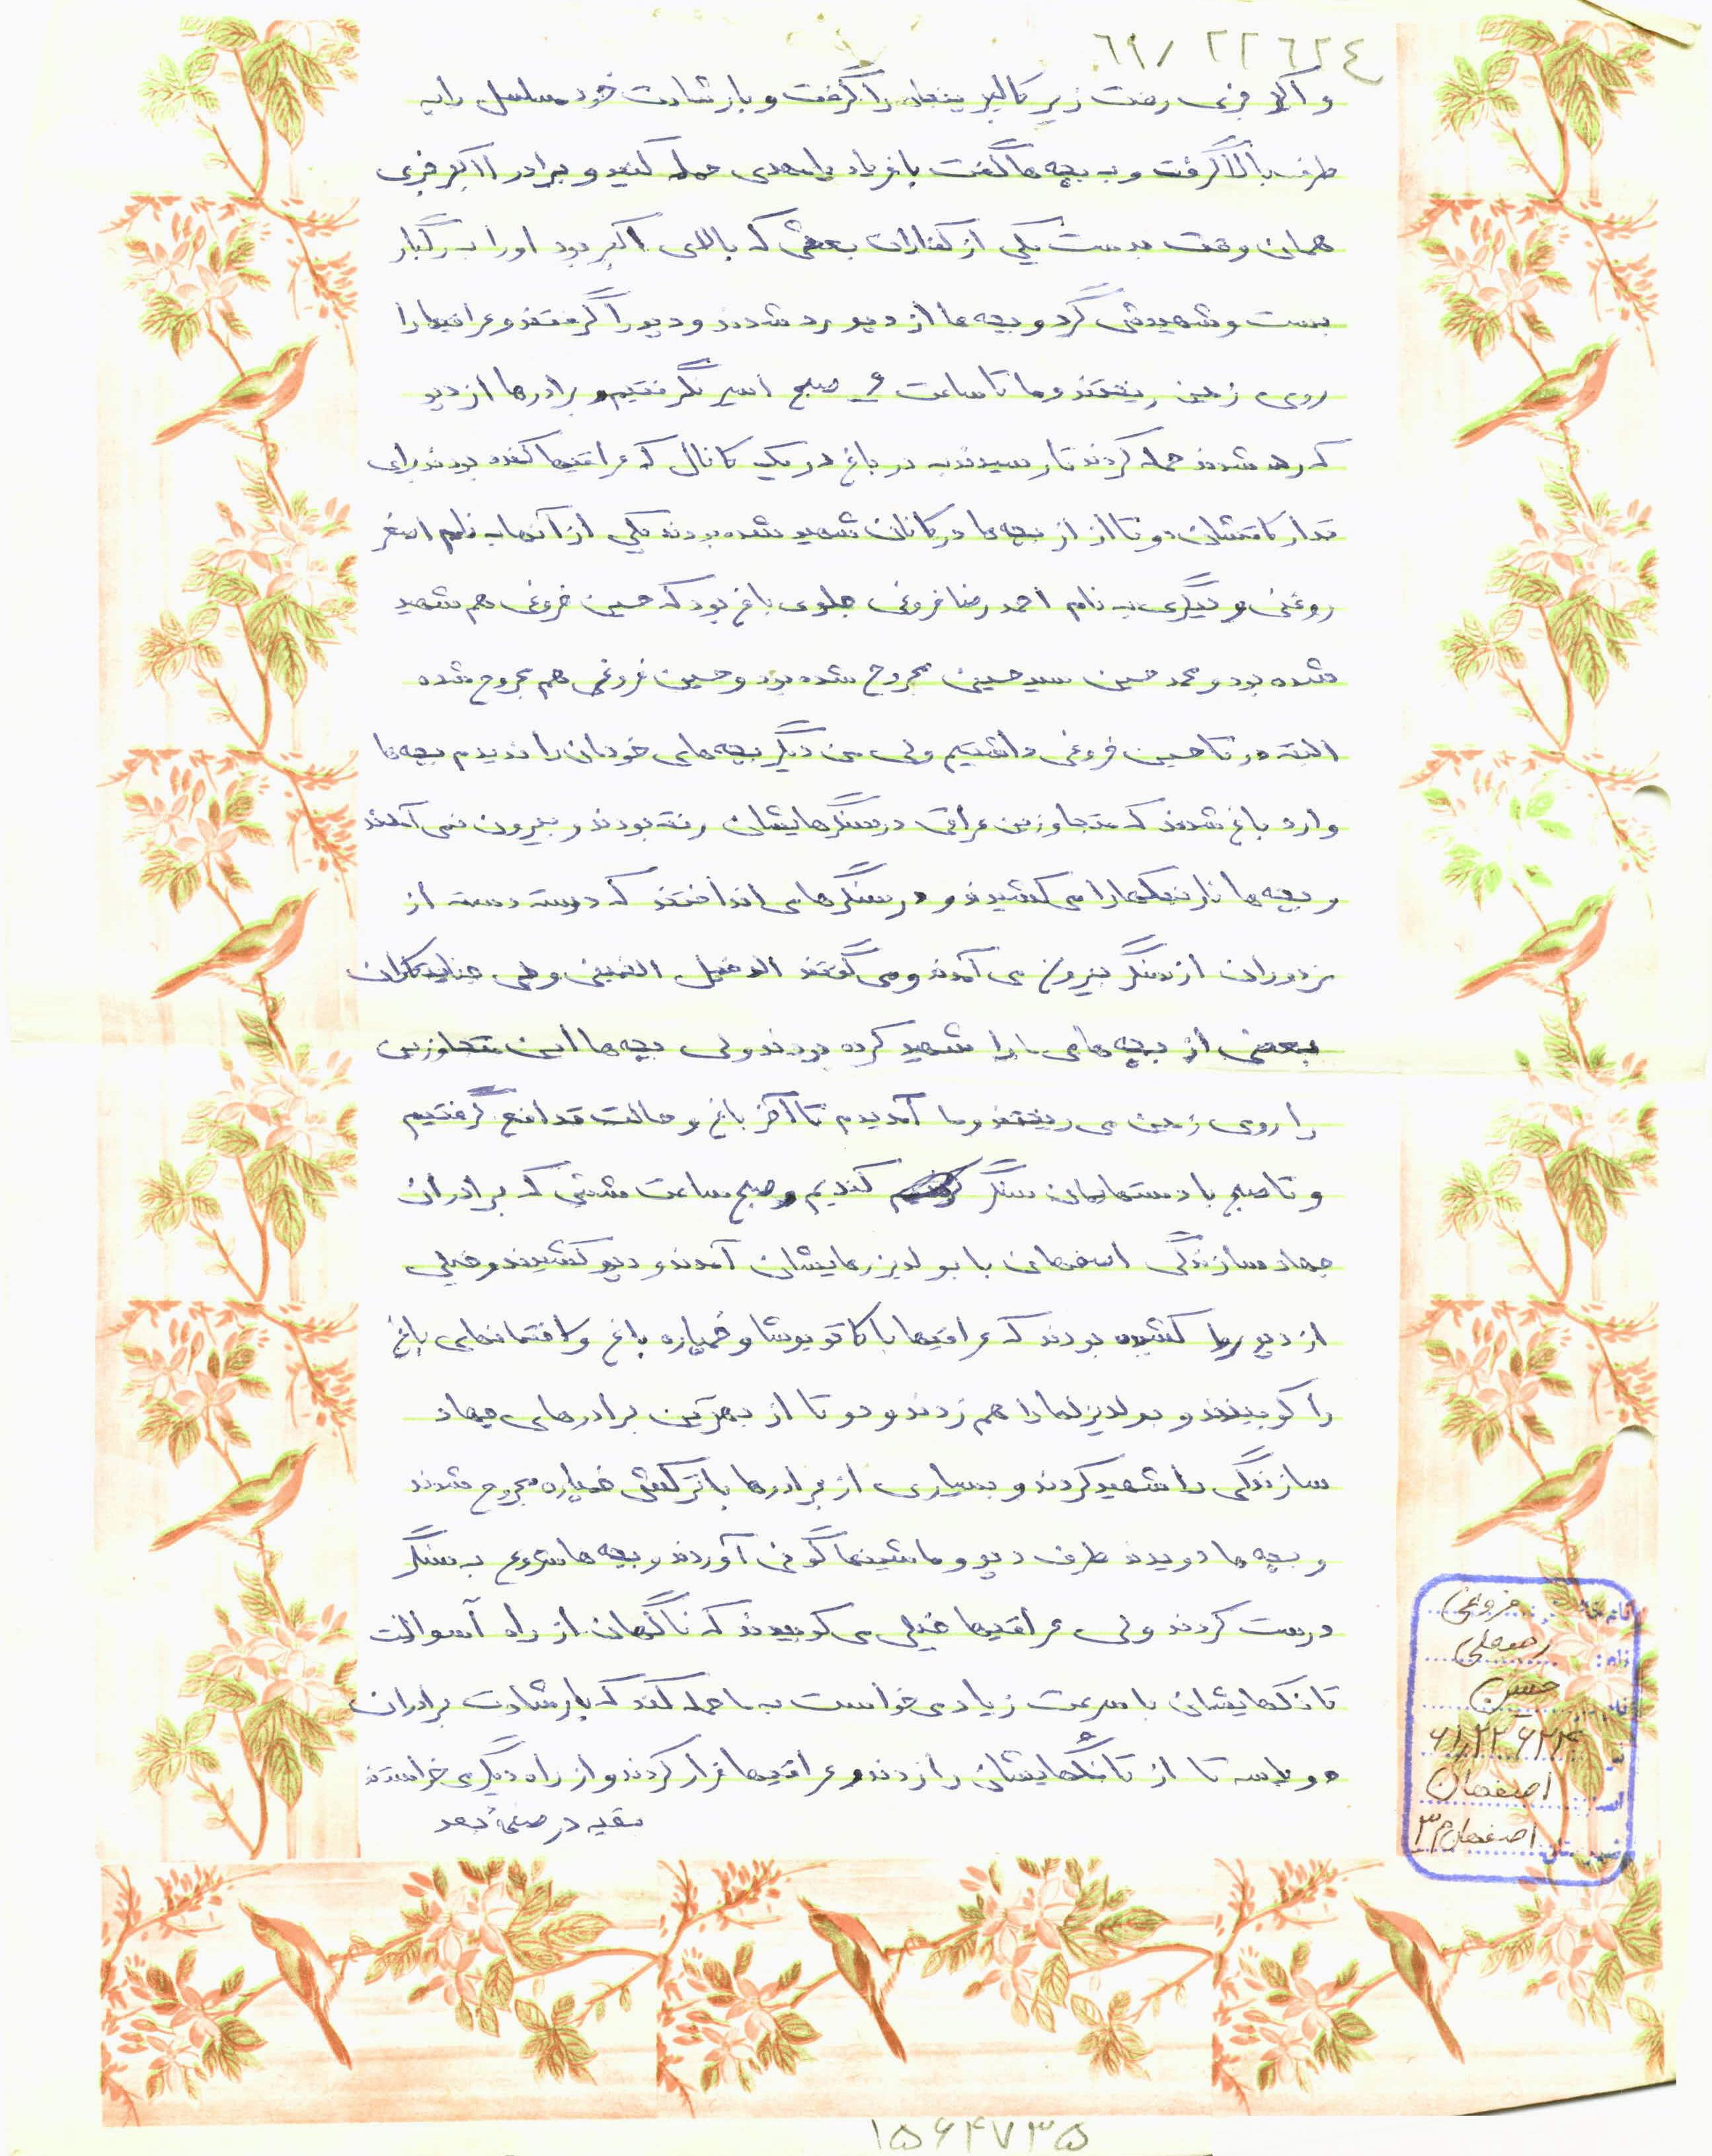 ٦١/ ٢٢٦٢٤
و اکبر فزی رفت زیر کالیبر پنجاه را گرفت و بارشادت خود مسلسل را به
طرف بالا گرفت و به بچه ها گفت با فریاد یا مهدی حمله کنید و برادر اکبر فزی
همان وقت بدست یکی از کفاران بعثی که بالای اکبر بود او را به رگبار
بست و شهیدش کرد و بچه ها از دپو رد شدند و دپو را گرفتند و عراقیها را
روی زمین ریختند و ما تا ساعت ۴ صبح اسیر نگرفتیم و برادرها از دپو
که رد شدند حمله کردند تا رسیدند به در باغ در یک کانال که عراقیها کنده بودند برای
تدارکاتشان دو تا از از بچه ها در کانال شهید شده بودند یکی از آنها به نام اصغر
روغنی و دیگری به نام احمد رضا فروغی جلوی باغ بود که حسین فروغی هم شهید
شده بود و محمد حسین سید حسینی مجروح شده بود و حسین فروغی هم مجروح شده
البته دو تا حسین فروغی داشتیم ولی من دیگر بچه های خودمان را ندیدم بچه ها
وارد باغ شدند که متجاوزین عراقی در سنگرهایشان رفته بودند و بیرون نمی آمدند
و بچه ها نارنجکها را می کشیدند و در سنگرها می انداختند که دسته دسته از
مزدوران از سنگر بیرون می آمدند و می گفتند الدخیل الخمینی ولی جنایتکاران
بعضی از بچه های ما را شهید کرده بودند ولی بچه ها این متجاوزین
را روی زمین می ریختند و ما آمدیم تا آخر باغ و حالت تدافع گرفتیم
و تا صبح با دستهایمان سنگر کندیم و صبح ساعت شش که برادران
جهاد سازندگی اصفهان با بولدیزرهایشان آمدند و دپو کشیدند و خیلی
از دپو را کشیده بودند که عراقیها با کاتویوشا و خمپاره باغ و ساختمانهای باغ
را کوبیدند و بولدیزلها را هم زدند و دو تا از بهترین برادرهای جهاد
سازندگی را شهید کردند و بسیاری از برادرها با ترکش خمپاره مجروح شدند
و بچه ها دویدند طرف دپو و ماشینها گونی آوردند و بچه ها شروع به سنگر
درست کردند ولی عراقیها خیلی می کوبیدند که ناگهان از راه آسوالت
تانکهایشان با سرعت زیاد می خواست به ما حمله کند که بارشادت برادران
دو یا سه تا از تانکهایشان را زدند و عراقیها فرار کردند و از راه دیگری خواستند
بقیه در صفحهٔ بعد
فروغی
نام: رمضعلی
حسین
۶۱٫۲۲۶۲۴
اصفهان
اصفهان ۳۲
۱۵۶۴۷۳۵